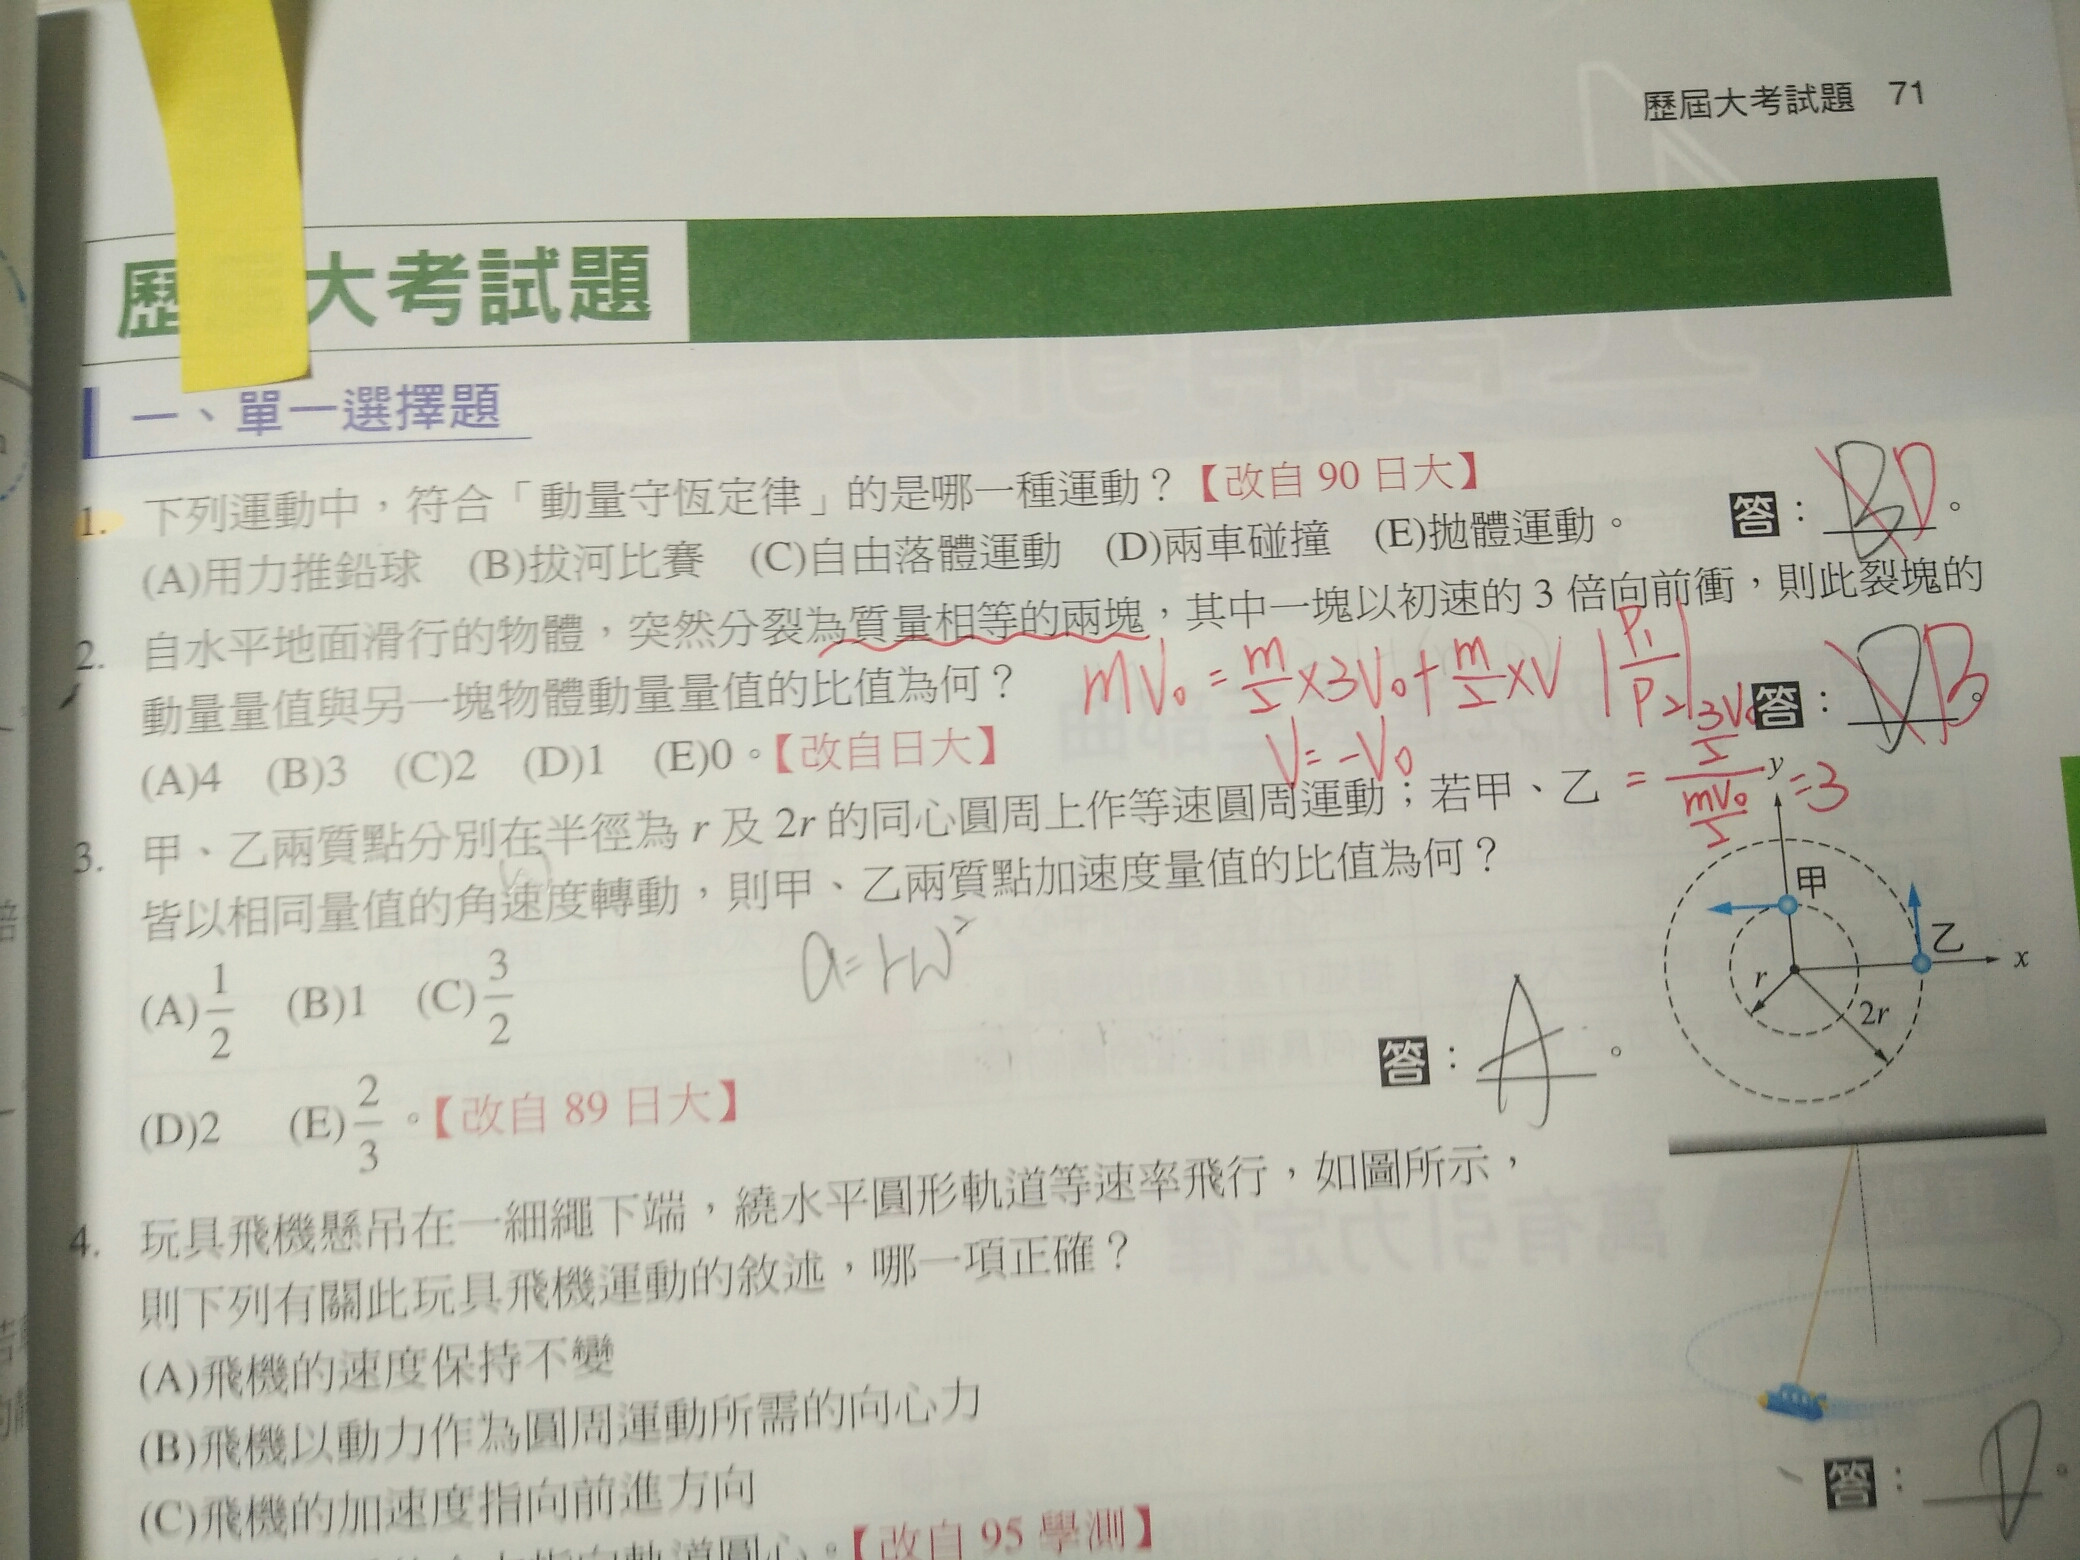 歷屆大考試題 71
歷 大考試題
一、單一選擇題
1. 下列運動中，符合「動量守恆定律」的是哪一種運動？【改自 90 日大】
(A)用力推鉛球 (B)拔河比賽 (C)自由落體運動 (D)兩車碰撞 (E)拋體運動。 答：B D。
2. 自水平地面滑行的物體，突然分裂為質量相等的兩塊，其中一塊以初速的 3 倍向前衝，則此裂塊的
動量量值與另一塊物體動量量值的比值為何？
mV₀ = m/2 ×3V₀ + m/2 ×V |P₁/P₂|
V = -V₀
= 3V₀/2 / mV₀/2 = 3
(A)4 (B)3 (C)2 (D)1 (E)0。【改自日大】 答：D B。
3. 甲、乙兩質點分別在半徑為 r 及 2r 的同心圓周上作等速圓周運動；若甲、乙
皆以相同量值的角速度轉動，則甲、乙兩質點加速度量值的比值為何？
a=rω²
(A)1/2 (B)1 (C)3/2
(D)2 (E)2/3。【改自 89 日大】
答：A。
y
甲
乙
x
r
2r
4. 玩具飛機懸吊在一細繩下端，繞水平圓形軌道等速率飛行，如圖所示，
則下列有關此玩具飛機運動的敘述，哪一項正確？
(A)飛機的速度保持不變
(B)飛機以動力作為圓周運動所需的向心力
(C)飛機的加速度指向前進方向
指向軌道圓心。【改自 95 學測】
答：D。